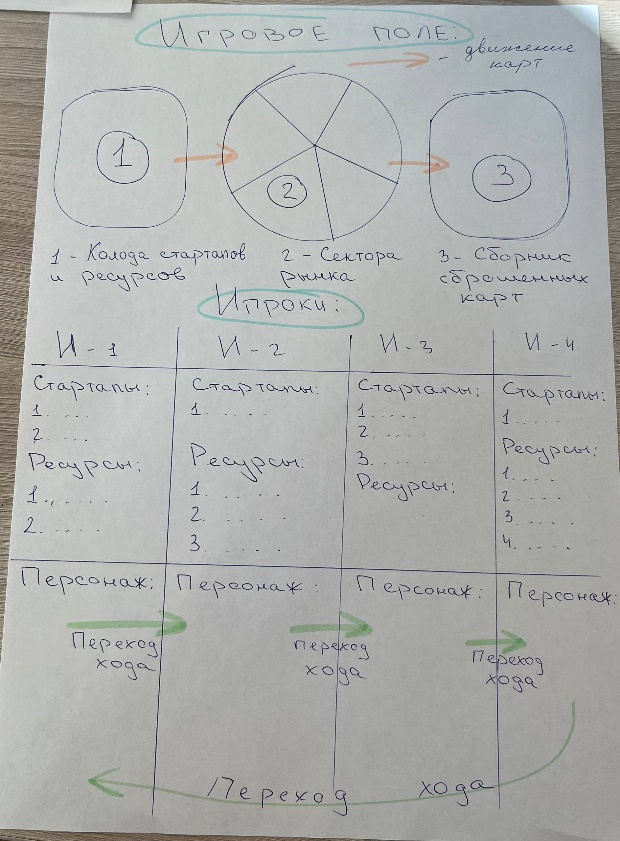 Игровое поле:
- движение
карт
1
2
3
1 - Колода стартапов
и ресурсов
2 - Сектора
рынка
3 - Сборник
сброшенных
карт
Игроки:
И - 1
И - 2
И - 3
И - 4
Стартапы:
1. . . . .
2 . . . .
Ресурсы:
1. . . . . .
2. . . . .
Стартапы:
1. . . . .
Ресурсы:
1. . . . .
2. . . . .
3 . . . . .
Стартапы:
1. . . . .
2. . . . .
3. . . . .
Ресурсы:
Стартапы:
1. . . . .
Ресурсы:
1. . . .
2 . . . .
3. . . . .
4. . . . .
Персонаж:
Персонаж:
Персонаж:
Персонаж:
Переход
хода
Переход
хода
Переход
хода
Переход хода